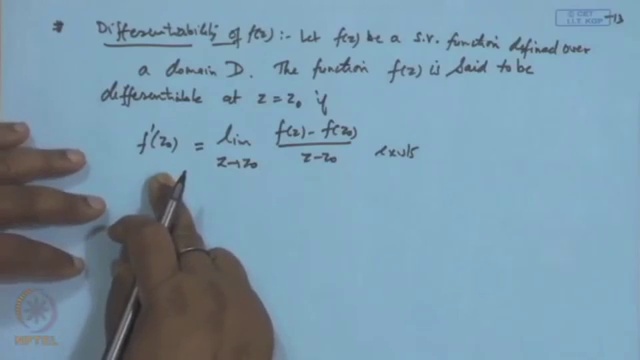 © CET
I.I.T. KGP
* Differentiability of f(z) :- Let f(z) be a s.v. function defined over
a domain D. The function f(z) is said to be
differentiable at z = z₀ if
f'(z₀) = lim z→z₀ f(z) - f(z₀) / z - z₀ exists
NPTEL